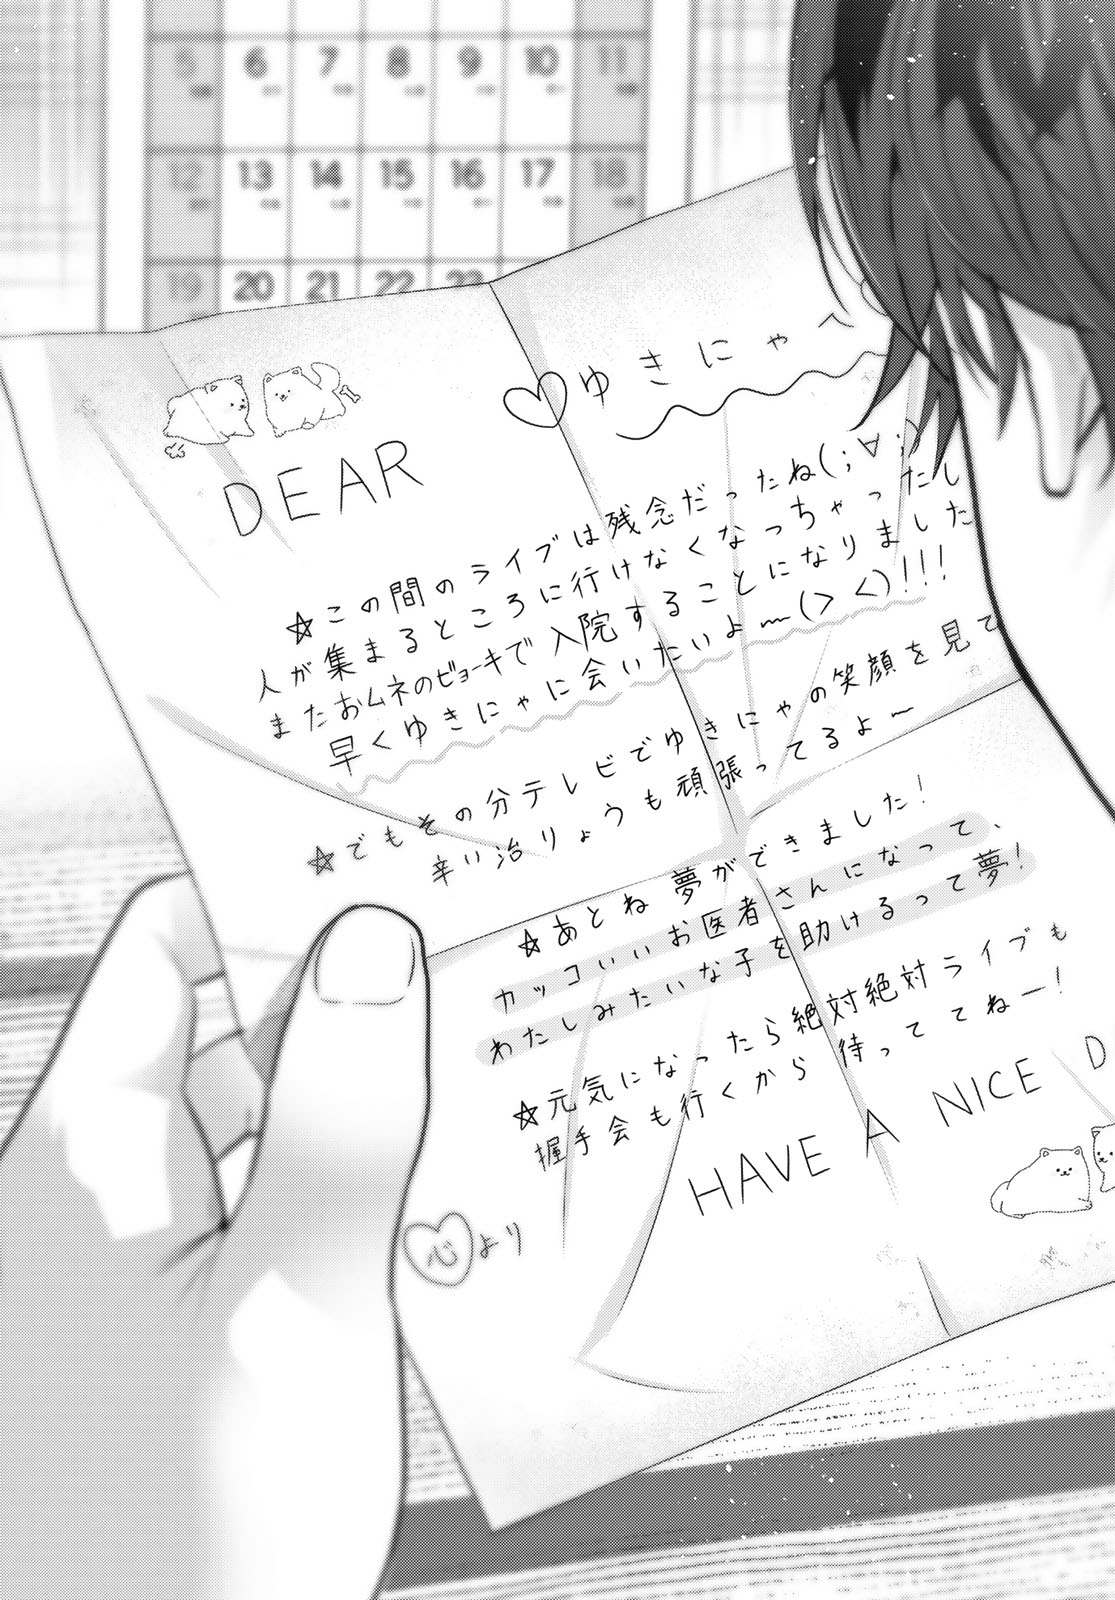 5 6 7 8 9 10 11
12 13 14 15 16 17 18
19 20 21 22 23
DEAR ♡ゆきにゃへ
☆この間のライブは残念だったね(;∀;)
人が集まるところに行けなくなっちゃったし
またおムネのビョーキで入院することになりました
早くゆきにゃに会いたいよ〜(><)!!!
☆でもその分テレビでゆきにゃの笑顔を見て
辛い治りょうも頑張ってるよ〜
☆あとね 夢ができました!
カッコいいお医者さんになって、
わたしみたいな子を助けるって夢!
☆元気になったら絶対絶対ライブも
握手会も行くから 待っててねー!
HAVE A NICE D
心より